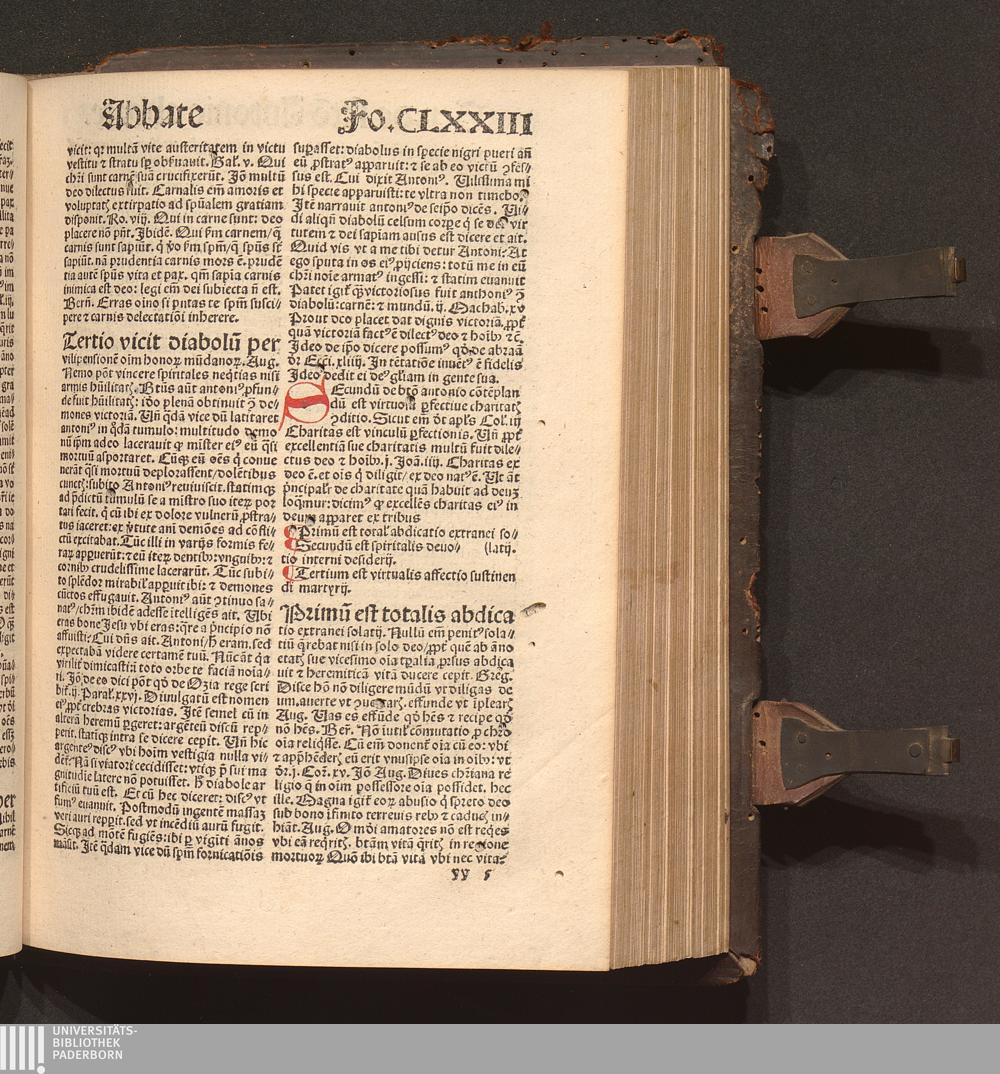 Abbate Fo.CLXXIII
vicit: qꝛ multā vite austeritatem in victu
vestitu ⁊ stratu sp̱ obẜuauit. Gal̕. v. Qui
chr̄i sunt carnē suā crucifixerūt. Jō multū
deo dilectus fuit. Carnalis em̄ amoris et
voluptatꝭ extirpatio ad spūalem gratiam
disponit. Ro. viij. Qui in carne sunt: deo
placere nō pn̄t. Ibidē. Qui ẜm carnem/ q̄
carnis sunt sapiūt. q̄ ỽo ẜm spm̄/ q̄ spūs st̄
sapiūt. nā prudentia carnis mors ē. prudē
tia autē spūs vita et pax. qm̄ sapia carnis
inimica est deo: legi em̄ dei subiecta n̄ est.
Bern̄. Erras oīno si putas te spm̄ susci⸗
pere ⁊ carnis delectatiōi inherere.
Tertio vicit diabolū per
vilipensionē oīm honoꝝ mūdanoꝝ. Aug.
Nemo pōt vincere spiritales neq̄tias nisi
armis hūilitatꝭ. Btūs aūt antoniꝰ ꝓfun⸗
de fuit hūilitatꝭ: iō̄o plenā obtinuit ꝯ de⸗
mones victoriā. Vn̄ q̄dā vice dū latitaret
antoniꝰ in q̄dā tumulo: multitudo demo
nū ip̄m adeo lacerauit ꝙ mīster eiꝰ eū q̄si
mortuū asportaret. Cūqꝫ eū oēs q̄ conue
nerāt q̄si mortuū deplorassent/ dolētibus
cunctꝭ: subito Antoniꝰ reuiuiscit. statimqꝫ
ad p̄dictū tumulū se a mīstro suo iteꝝ por
tari fecit. q̄ cū ibi ex dolore vulnerū ꝓstra⸗
tus iaceret: ex ṽtute anī demōes ad cōfli⸗
ctū excitabat. Tūc illi in varijs formis fe⸗
raꝝ apꝑuerūt: ⁊ eū iteꝝ dentibꝰ: vnguibꝰ: ⁊
cornibꝰ crudelissime lacerarūt. Tūc subi⸗
to splēdoꝛ mirabilꝭ apꝑuit ibi: ⁊ demones
cūctos effugauit. Antoniꝰ aūt ꝯtinuo sa⸗
natꝰ/ chr̄m ibidē adesse ītelligēs ait. Vbi
eras bone Jesu vbi eras: q̄re a p̄ncipio nō
affuisti: Cui dn̄s ait. Antoni/ ħ eram. sed
expectabā videre certamē tuū. Nūc āt q̄a
virilit̕ dimicasti: ī toto orbe te faciā noīa⸗
ri. Jō de eo dici pōt qð de Ozia rege scri
bit̕. ij. Paral̕. xxvj. Diuulgatū est nomen
eiꝰ ꝓpt̕ crebras victorias. Jtē semel cū in
alterā heremū ꝑgeret: argēteū discū rep⸗
perit. statiqꝫ intra se dicere cepit. Vn̄ hic
argenteꝰ discꝰ vbi hoīm vestigia nulla vi⸗
dēt̕. Nā si viatori cecidisset: vtiqꝫ p̄ sui ma
gnitudie latere nō potuisset. ħ diabole ar
tificiū tuū est. Et cū hec diceret: discꝰ vt
fumꝰ euanuit. Postmodū ingentē massaꝫ
veri auri repꝑit. sed vt incēdiū aurū fugit.
Sicqꝫ ad mōtē fugiēs: ibi ꝑ vigīti ānos
māsit. Jtē q̄dam vice dū spm̄ fornicatiōis
suꝑasset: diabolus in specie nigri pueri an̄
eū ꝓstratꝰ apꝑaruit: ⁊ se ab eo victū ꝯfes⸗
sus est. Cui dixit Antoniꝰ. Vilissima mi
hi specie apparuisti: te vltra non timebo.
Jtē narrauit antoniꝰ de seipo dicēs. Vi⸗
di aliqn̄ diabolū celsum corꝑe q̄ se dei vir
tutem ⁊ dei sapiam ausus est dicere et ait.
Quid vis vt a me tibi detur Antoni: At
ego sputa in os eiꝰ ꝓijciens: totū me in eū
chr̄i noīe armatꝰ ingessi: ⁊ statim euanuit
Patet igit̕ q̄ victoriosus fuit anthoniꝰ ꝯ
diabolū: carnē: ⁊ mundū. ij. Machab. xv
Prout deo placet dat dignis victoriā. ꝓpt̕
quā victoriā factꝰ ē dilectꝰ deo ⁊ hoībꝰ ⁊ꝛ.
Jdeo de ip̄o dicere possumꝰ qð de abraā
dr̄ Ecci. xliiij. In tētatiōe inuētꝰ ē fidelis
Jdeo dedit ei deꝰ gl̄iam in gente sua.
SEcundū de btō antonio cōtēplan
dū est virtuosa ꝑfectiue charitatꝭ
ꝯditio. Sicut em̄ dt̄ apl̄s Col. iij
Charitas est vinculū ꝑfectionis. Vn̄ ꝓpt̕
excellentiā sue charitatis multū fuit dile⸗
ctus deo ⁊ hoībꝰ. j. Joā. iiij. Charitas ex
deo ē. et oīs q̄ diligit/ ex deo natꝰ ē. Vt āt
p̄ncipalr̄ de charitate quā habuit ad deuꝫ
loq̄mur: dicimꝰ ꝙ excellēs charitas eiꝰ in
deum apparet ex tribus
¶ Primū est totalꝭ abdicatio extranei so⸗
¶ Secundū est spiritalis deuo⸗ (latij.
tio interni desiderij.
¶ Tertium est virtualis affectio sustinen
di martyrij.
Primū est totalis abdica
tio extranei solatij. Nullū em̄ penitꝰ sola⸗
tiū q̄rebat nisi in solo deo/ ꝓpt̕ quē ab āno
etatꝭ sue vicesimo oīa tꝑalia ꝓrsus abdica
uit ⁊ heremiticā vitā ducere cepit. Greg.
Disce hō nō diligere mūdū vt diligas de
um. auerte vt ꝯuertarꝭ. effunde vt īplearꝭ
Aug. Vas es effūde qð hēs ⁊ recipe qð
nō hēs. Ber̄. Nō iutil̕ cōmutatio ꝓ chr̄o
oīa reliq̄sse. Cū em̄ donent̕ oīa cū eo: vbi
⁊ apꝓhēderꝭ eū erit vnusipse oīa in oībꝰ: vt
dr̄. j. Coꝝ. xv. Jō Aug. Diues chr̄iana re
ligio q̄ in oīm possessore oīa possidet. hec
ille. Magna igit̕ eoꝝ abusio q̄ spreto deo
sub bono īfinito terrenis rebꝰ ⁊ caducꝭ in⸗
hiāt. Aug. O mōi amatores nō est reqes
vbi eā reqritꝭ. btam vitā q̄ritꝭ in regione
mortuoꝝ Quō ibi btā vitā vbi nec vita⸗
yy 5
UNIVERSITÄTS-
BIBLIOTHEK
PADERBORN